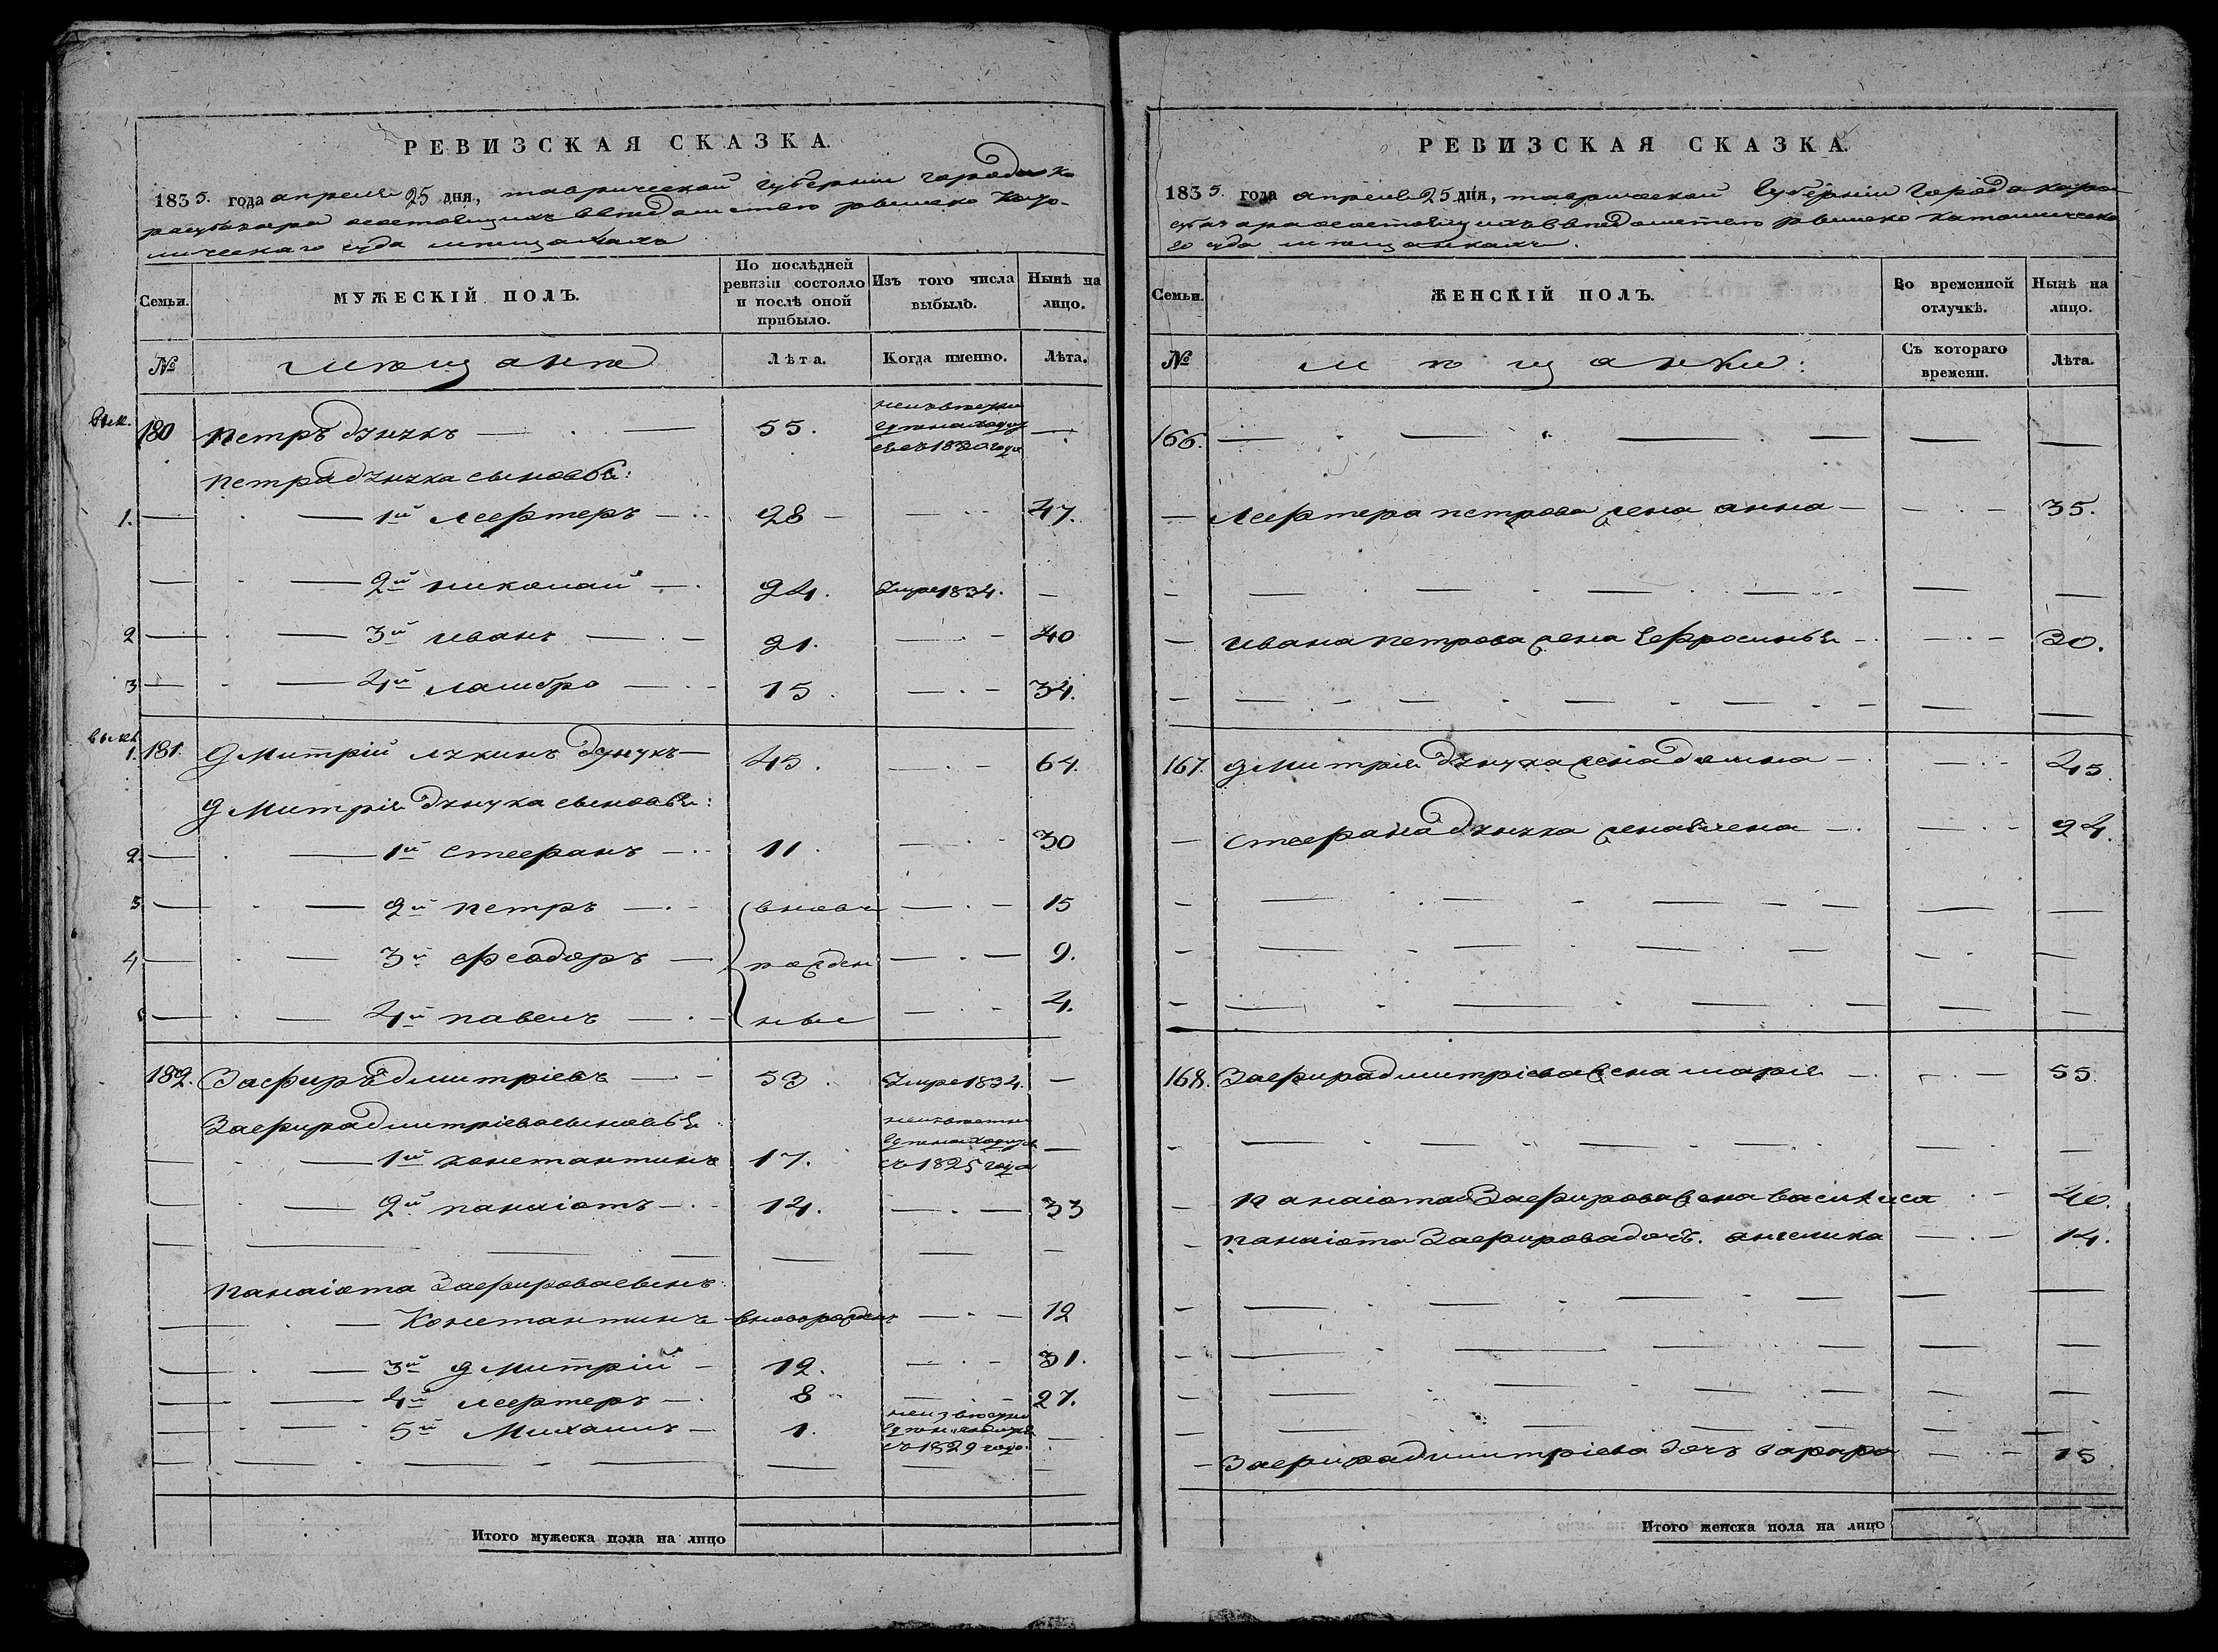 РЕВИЗСКАЯ СКАЗКА.
1835. года апреля 25 дня, таврической Губернии города Ка
расубазара о состоящихъ в ведомстве римско Като-
лическаго суда мещанахъ
Семьи.
МУЖЕСКІЙ ПОЛЪ.
По послѣдней ревизіи состояло и послѣ оной прибыло.
Изъ того числа выбыло.
Нынѣ на лицо.
№
мещане
Лѣта.
Когда именно.
Лѣта.
180 Петръ 55. неизвестно где находится съ 1830 года —
Петра сыновья:
1. — 1й Лефтеръ — 28 — 47.
— 2й николай — 24. Умре 1834. —
2 — 3й иванъ — 21. — 40
3 — 4й Ламбро — 15. — 34.
1. 181. Дмитрій 45. — 64.
Дмитрія сыновья:
2. — 1й Стефанъ — 11. — 30
3 — 2й петръ — вновь — 15
4 — 3й феодоръ — рожден — 9.
5 — 4й павелъ — ные — 4.
182. Зафиръ дмитріевъ — 53. Умре 1834. —
Зафира дмитріева сыновья:
— 1й константинъ 17. неизвестно где находится съ 1825 года —
— 2й панаіотъ — 14. — 33
Панаіота Зафирова сынъ:
— Константинъ вноворожден — 12
— 3й Дмитрій — 12. — 31.
— 4й лефтеръ — 8 — 27.
— 5й Михаилъ — 1. неизвестно где находится съ 1829 года. —
Итого мужеска пола на лицо
РЕВИЗСКАЯ СКАЗКА.
1835. года апреля 25 дня, таврической Губерніи Города кара
субазара о состоящихъ в ведомстве римско католическа
го суда мещанкахъ.
Семьи.
ЖЕНСКІЙ ПОЛЪ.
Во временной отлучкѣ.
Нынѣ на лицо.
№
мещанки:
Съ котораго времени.
Лѣта.
166. —
— Лефтера петрова жена анна — 35.
— ивана петрова жена Ефросинья — 30.
167. Дмитрія жена домна — 45.
— Стефана жена елена — 24.
168. Зафира дмитріева жена марія — 55.
— Панаіота Зафирова жена василиса — 40.
— панаіота Зафирова дочь ангелика — 14.
— Зафира дмитріева дочъ варвара — 15
Итого женска пола на лицо